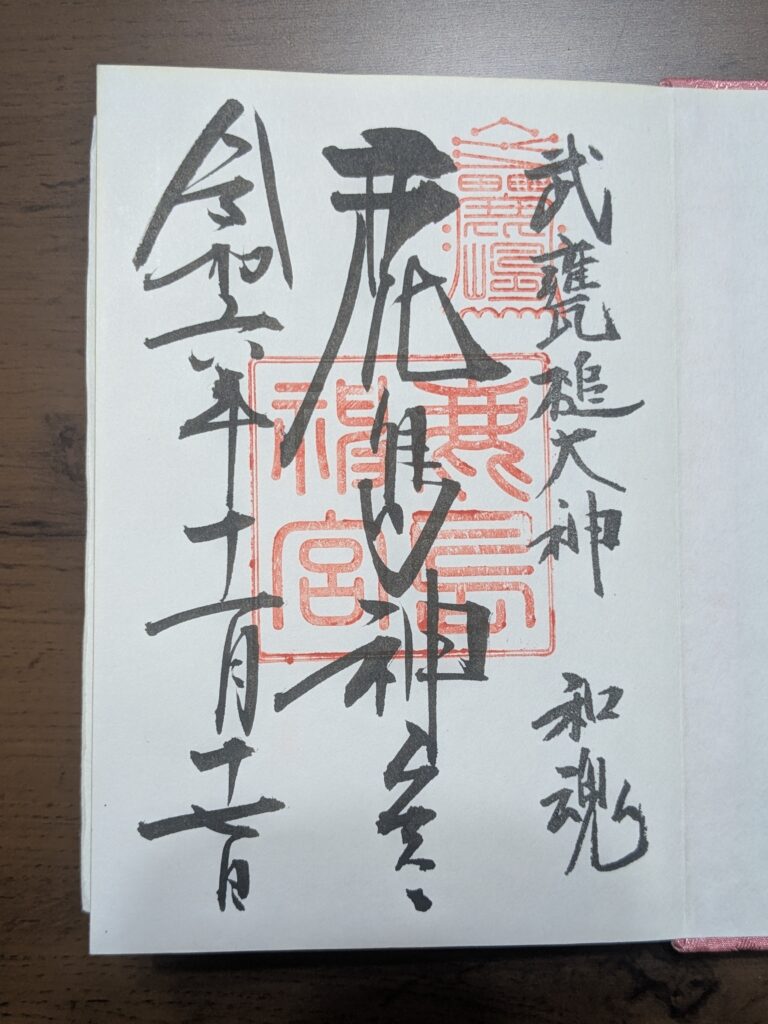 武甕槌大神 和魂
鹿島神宮
鹿島神宮
令和六年十一月十七日